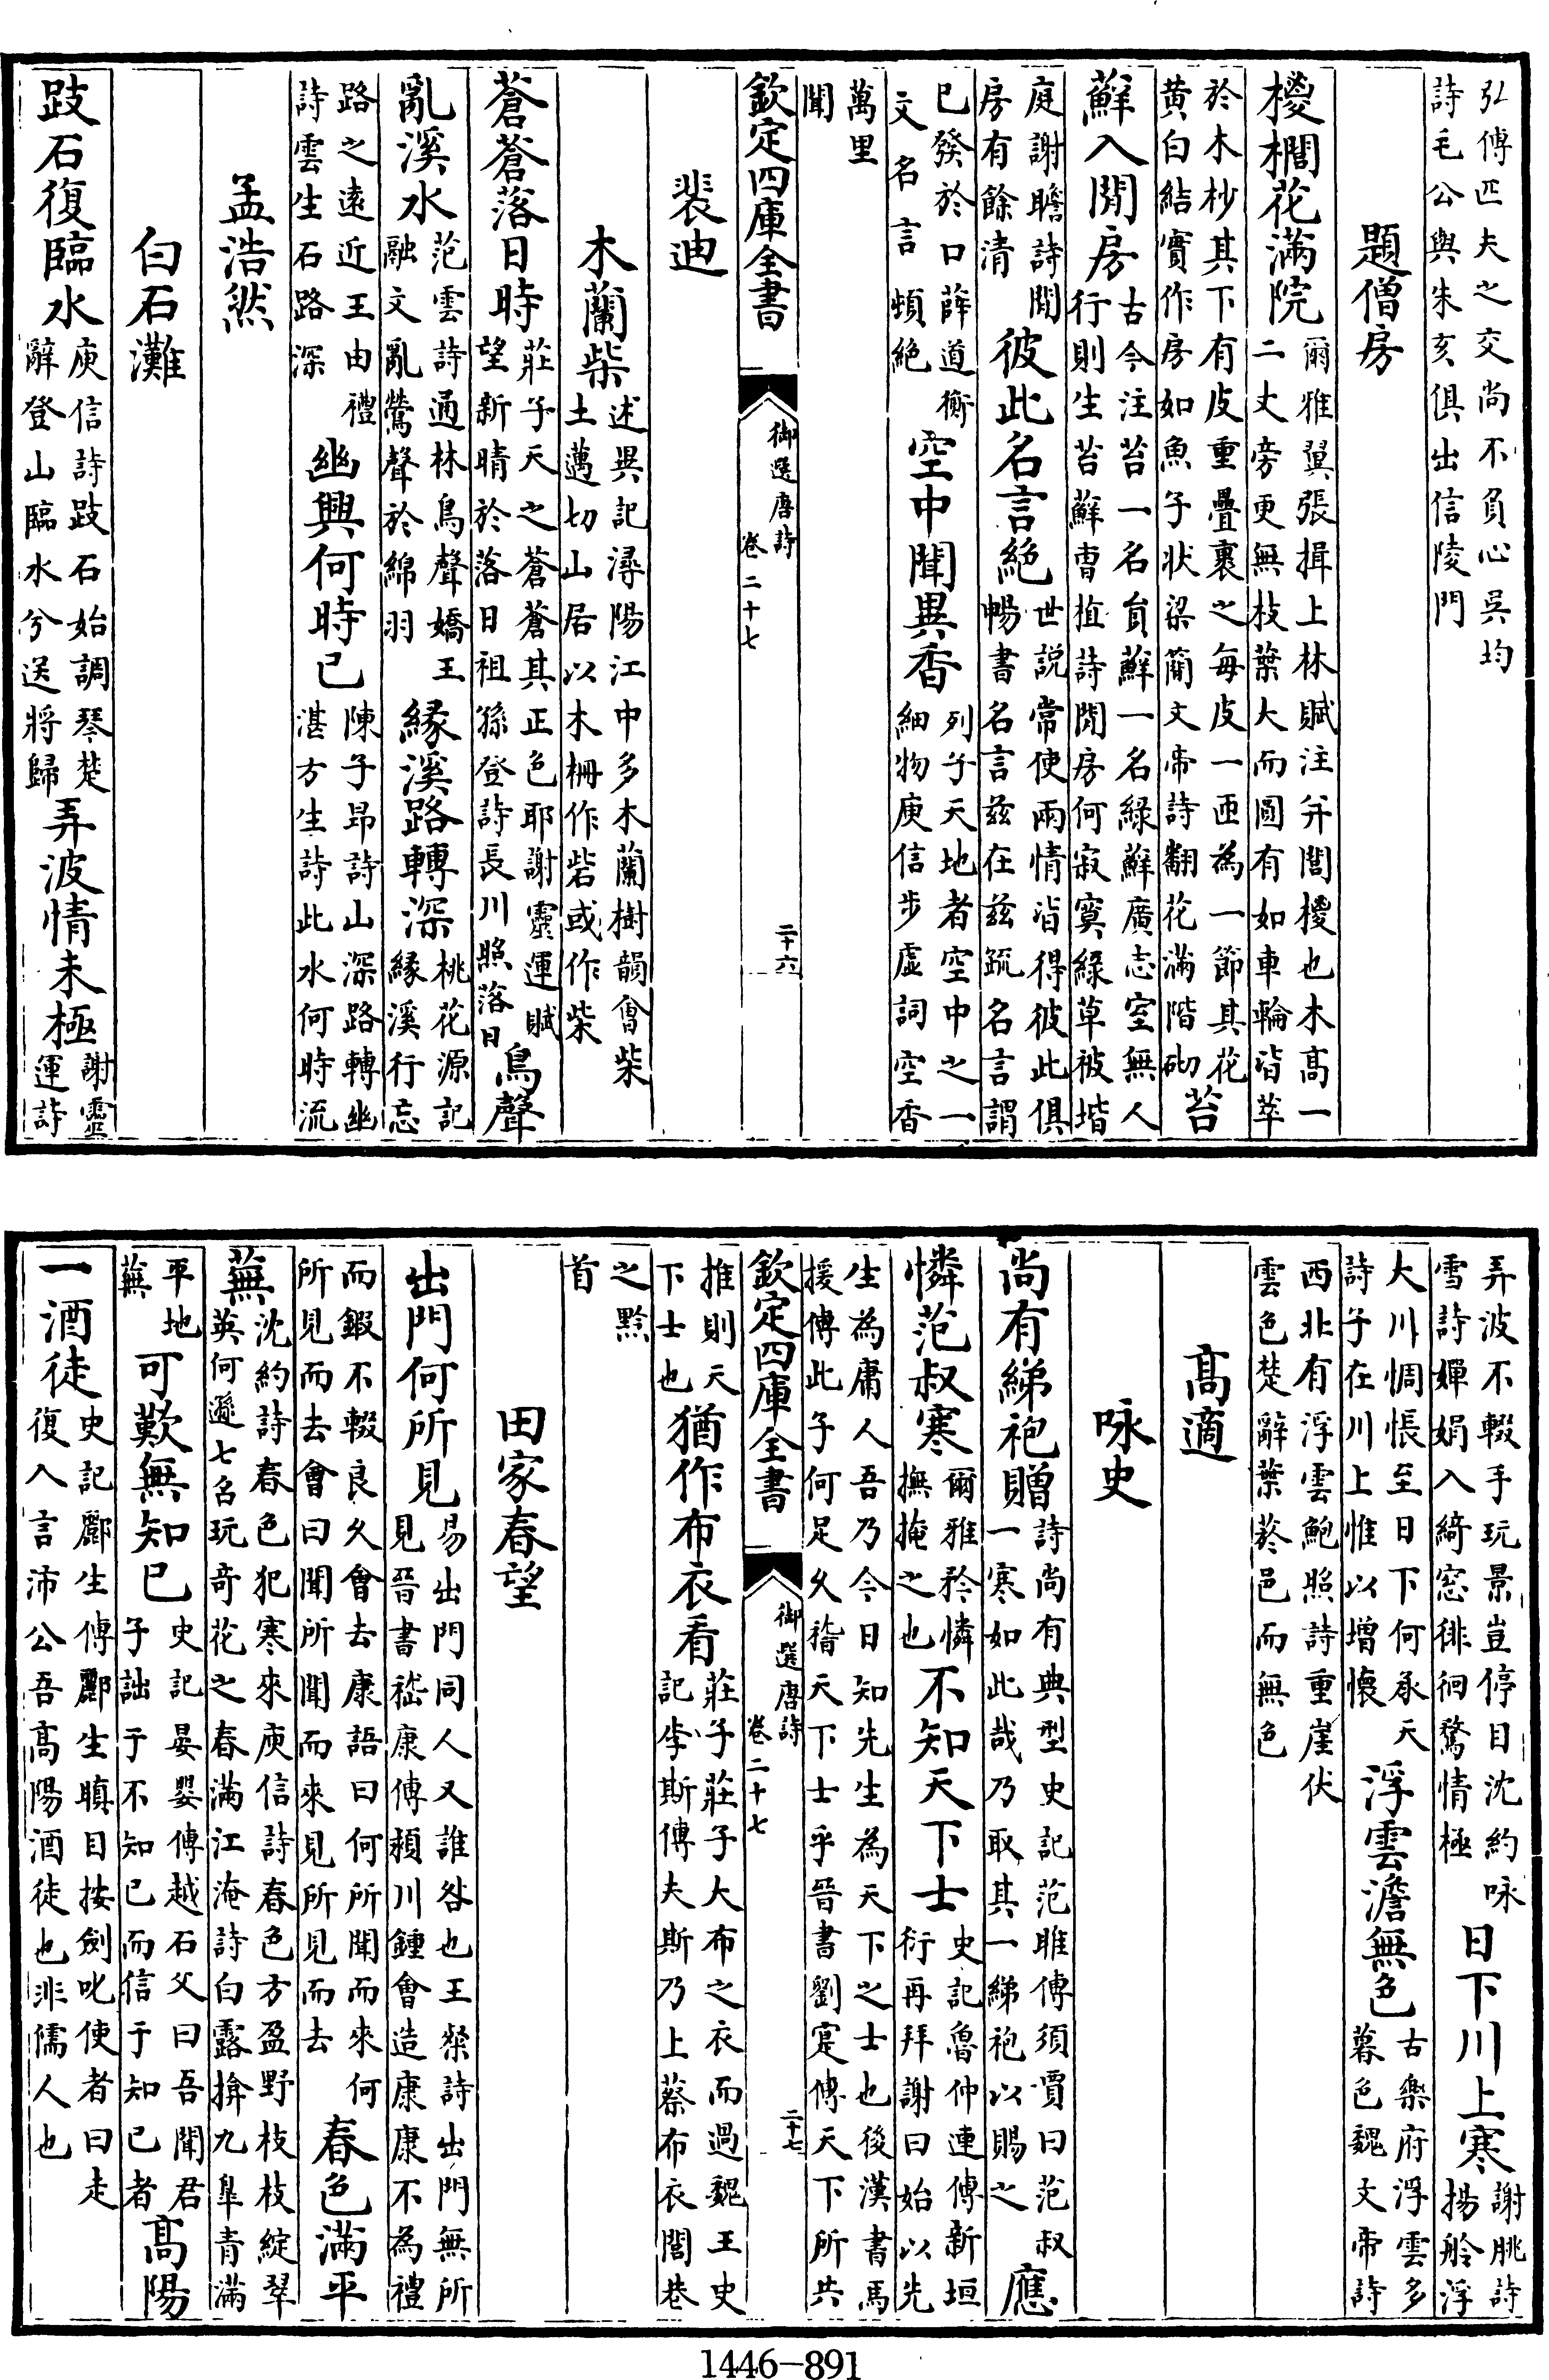 弘傅匹夫之交尚不負心吳均
詩毛公與朱亥俱出信陵門
題僧房
椶櫚花滿院爾雅翼張揖上林賦注并閭椶也木髙一二丈旁更無枝葉大而圓有如車輪皆萃
於木杪其下有皮重疊裹之每皮一匝為一節其花黄白結實作房如魚子状梁簡文帝詩翻花滿階砌苔
蘚入閒房古今注苔一名貟蘚一名綠蘚廣志空無人行則生苔蘚曹植詩閒房何寂寞綠草被堦
庭謝瞻詩閒房有餘清彼此名言絶世説常使兩情皆得彼此俱暢書名言兹在兹疏名言謂
已發於口薛道衡文名言頓絶空中聞異香列子天地者空中之一細物庾信步虛詞空香
萬里聞
欽定四庫全書
御選唐詩
卷二十七
二十六
裴迪
木蘭柴述異記潯陽江中多木蘭樹韻㑹柴土邁切山居以木柵作砦或作柴
蒼蒼落日時莊子天之蒼蒼其正色耶謝靈運賦望新晴於落日祖孫登詩長川照落日鳥聲
亂溪水范雲詩通林鳥聲嬌王融文亂鶯聲於綿羽緣溪路轉深桃花源記緣溪行忘
路之遠近王由禮詩雲生石路深幽興何時已陳子昂詩山深路轉幽湛方生詩此水何時流
孟浩然
白石灘
跂石復臨水庾信詩跂石始調琴楚辭登山臨水兮送將歸弄波情未極謝靈運詩
弄波不輟手玩景豈停目沈約咏雪詩嬋娟入綺窓徘徊騖情極日下川上寒謝朓詩揚舲浮
大川惆悵至日下何承天詩子在川上惟以增懷浮雲澹無色古樂府浮雲多暮色魏文帝詩
西北有浮雲鮑照詩重崖伏雲色楚辭葉菸邑而無色
髙適
咏史
尚有綈袍贈詩尚有典型史記范雎傅須賈曰范叔一寒如此哉乃取其一綈袍以賜之應
憐范叔寒爾雅矜憐撫掩之也不知天下士史記魯仲連傅新垣衍再拜謝曰始以先
生為庸人吾乃今日知先生為天下之士也後漢書馬援傅此子何足久稽天下士乎晉書劉寔傅天下所共
欽定四庫全書
御選唐詩
卷二十七
二十七
推則天下士也猶作布衣看莊子莊子大布之衣而過魏王史記李斯傅夫斯乃上蔡布衣閭巷
之黔首
田家春望
出門何所見易出門同人又誰咎也王粲詩出門無所見晉書嵇康傅潁川鍾會造康康不為禮
而鍛不輟良久會去康語曰何所聞而來何所見而去會曰聞所聞而來見所見而去春色滿平
蕪沈約詩春色犯寒來庾信詩春色方盈野枝枝綻翠英何遜七召玩奇花之春滿江淹詩白露揜九臯青滿
平地蕪可歎無知已史記晏嬰傅越石父曰吾聞君子詘于不知已而信于知已者髙陽
一酒徒史記酈生傅酈生瞋目按劍叱使者曰走復入言沛公吾髙陽酒徒也非儒人也
1446—891